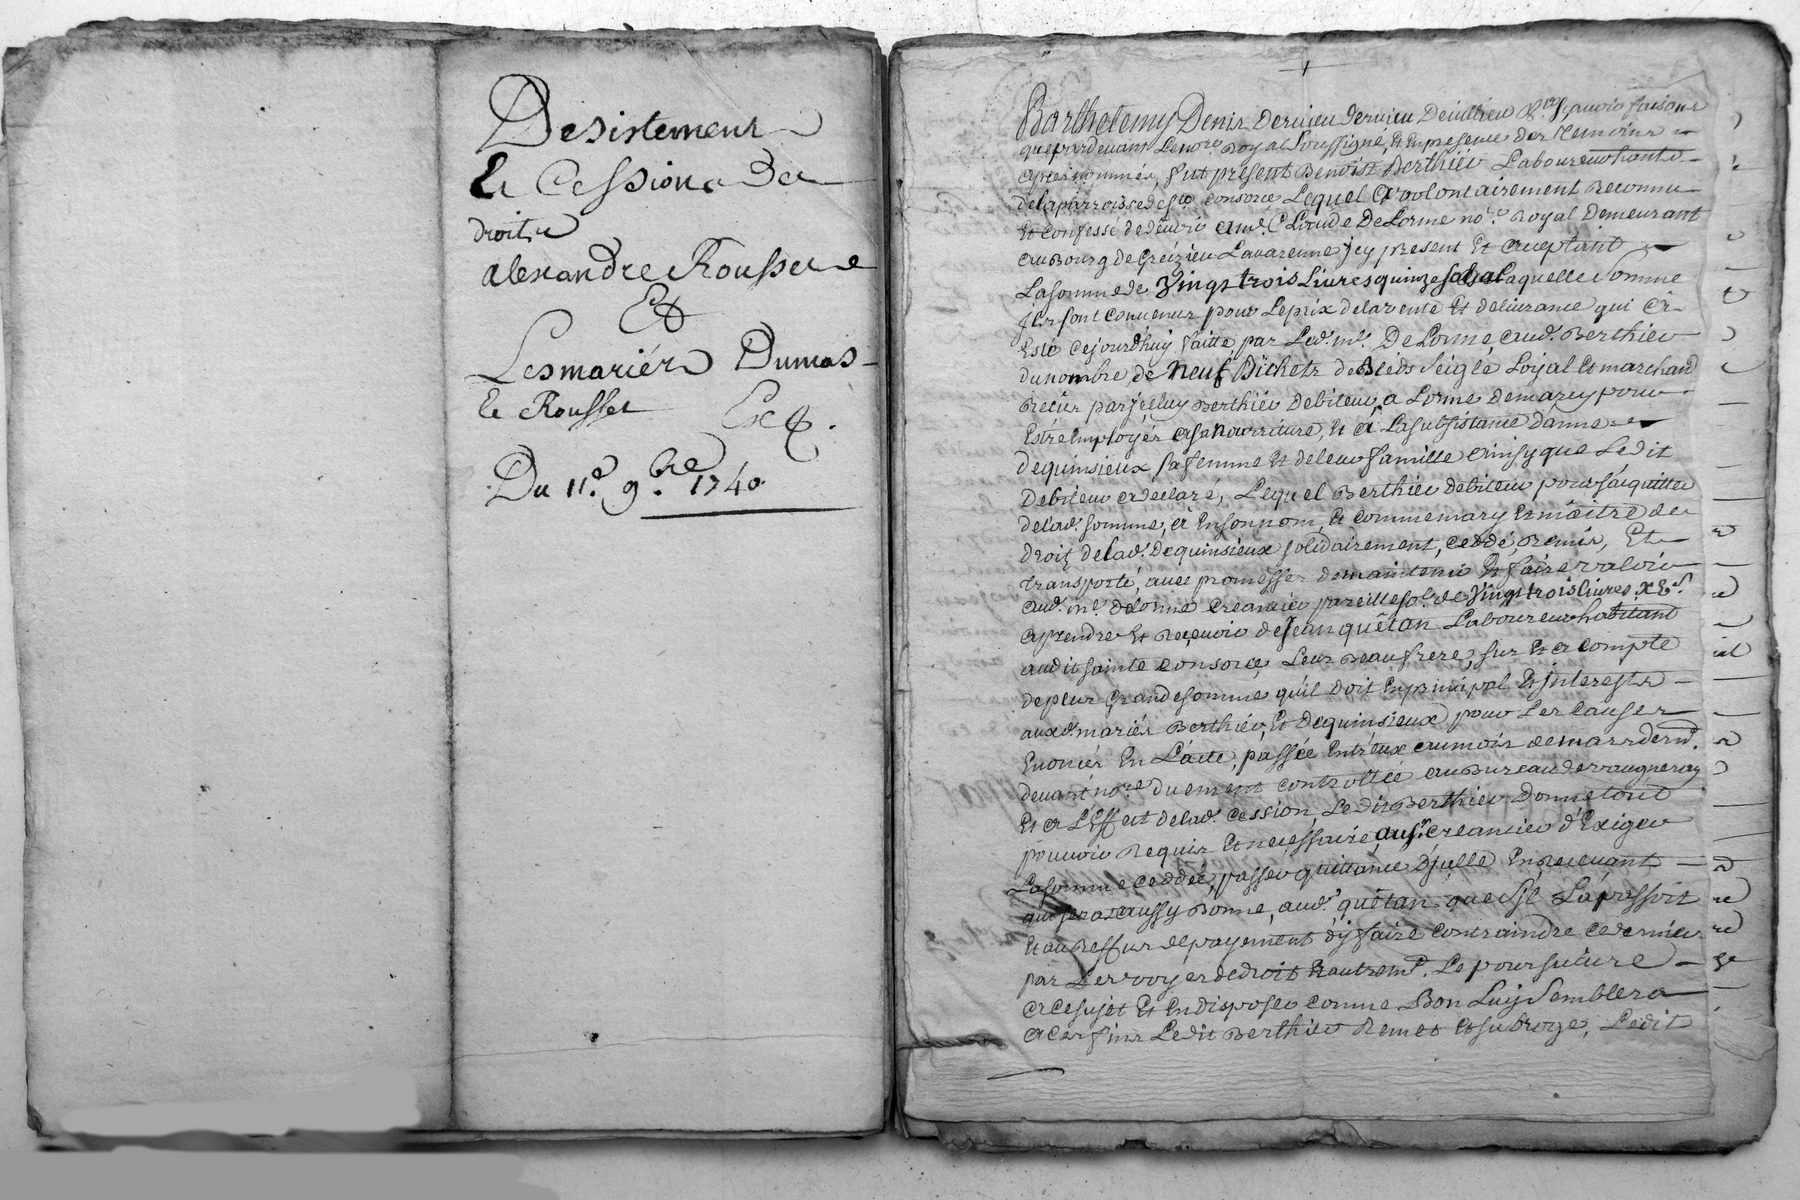 Desistement
Et Cession De
droit,
alexandre Rousset
Et
Lesmariés Dumas
Et Rousset Exp.
Du 11e. 9bre 1740.
Barthelemy Denis Dervieu Dervieu Devillieu sçavoir faisons
que pardevant Le nore. Royal soussigné, Et En presence des temoins
apres nommés, fut present Benoist Berthier Laboureur habitant
de la parroisse de ste consorce Lequel a volontairement Reconnu
Et confessé de devoir a me. Claude DeLorme nore. Royal Demeurant
au Bourg de Greizieu Lavarenne jcy present Et acceptant
La somme de vingt trois Livres quinze sols a Laquelle somme
jls sont convenus pour Le prix de la vente Et delivrance qui a
Esté cejourd'huy faitte par Led. me. DeLorme, aud. Berthier
du nombre de Neuf Bichets de Bleds seigle Loyal Et marchand
Recus par jceluy Berthier debiteur, a Lorme de marcy pour
Estre Employés a sa Nourriture, Et a La subsistance d'anne
dequinsieux sa femme Et de leur famille ainsy que Ledit
Debiteur a declaré, Lequel Berthier debiteur pour s'acquitter
de lad. somme, a En son nom, Et comme mary Et maître des
droits de lad. Dequinsieux solidairement, ceddé, Remis, Et
transporté, avec promesse de maintenir Et faire valoir
aud. me. delorme creancier pareille so. de vingt trois livres xv s.
a prendre Et Recevoir de Jean quêtan Laboureur habitant
audit sainte consorce, Leur Beau frere, sur Et a compte
de plus grande somme qu'il doit En principal Et jnterests
auxd. mariés Berthier, Et Dequinsieux pour Les causes
Enoncés En L'acte, passée Entr'eux au mois de mars dernr.
devant nore. duement controllée au Bureau de vaugneray
Et a L'Effect de lad. cession, Ledit Berthier Donne tout
pouvoir Requis Et necessaire, aud. sr. creancier d'Exiger
La somme ceddée, passer quittance d'jcelle En Recevant
qui sera aussy Bonne, aud. quêtan que s'il La passoit
Et au Reffus de payement d'y faire contraindre ce dernier
par Les voyes de droit Et autremt. Le poursuivre
a ce sujet Et En disposer comme Bon Luy semblera
a ces fins Ledit Berthier Remet Et subroge, Ledit